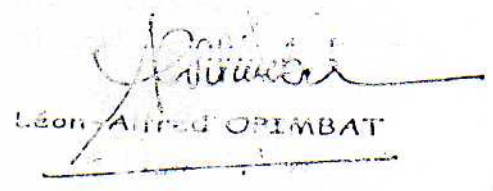 Léon-Alfred OPIMBAT